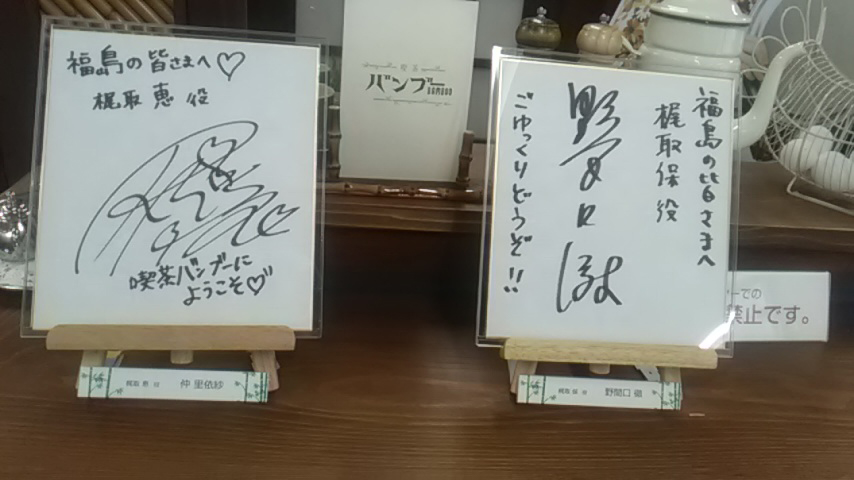 福島の皆さまへ♡
梶取 恵 役
喫茶バンブーに
ようこそ♡
梶取 恵 役 仲 里依紗
喫茶
バンブー
BAMBOO
福島の皆さまへ
梶取保役
野間口徹
ごゆっくりどうぞ!!
梶取 保 役 野間口 徹
ーでの
禁止です。